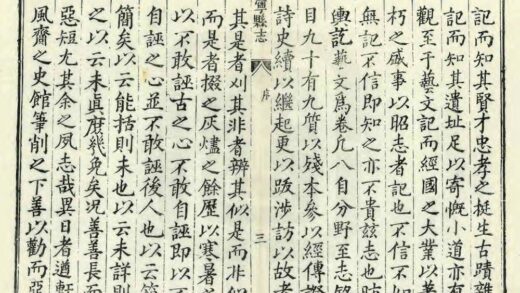 記而知其賢才忠孝之挺生古蹟雜
記而知其遺址足以寄慨小道亦有
觀至于藝文記而經國之大業以著
朽之盛事以昭志者記也不信不如
無記不信即知之亦不貴兹志也昉
輿訖藝文爲卷凡八自分野至志
目九十有九質以殘本參以經傳證
詩史續以繼起更以跋涉訪以故老
寧縣志
序
三
其是者刈其非者辨其似是而非似
而是者掇之灰燼之餘歷以寒暑
以不敢誣古之心不敢自誣即以不
自誣之心並不敢誣後人也以云簡
簡矣以云能括則未也以云詳則
之以云未眞庶幾免矣况善善長而
惡短九其余之夙志哉異日者遒軒
風齋之史館筆削之下善以勸而惡